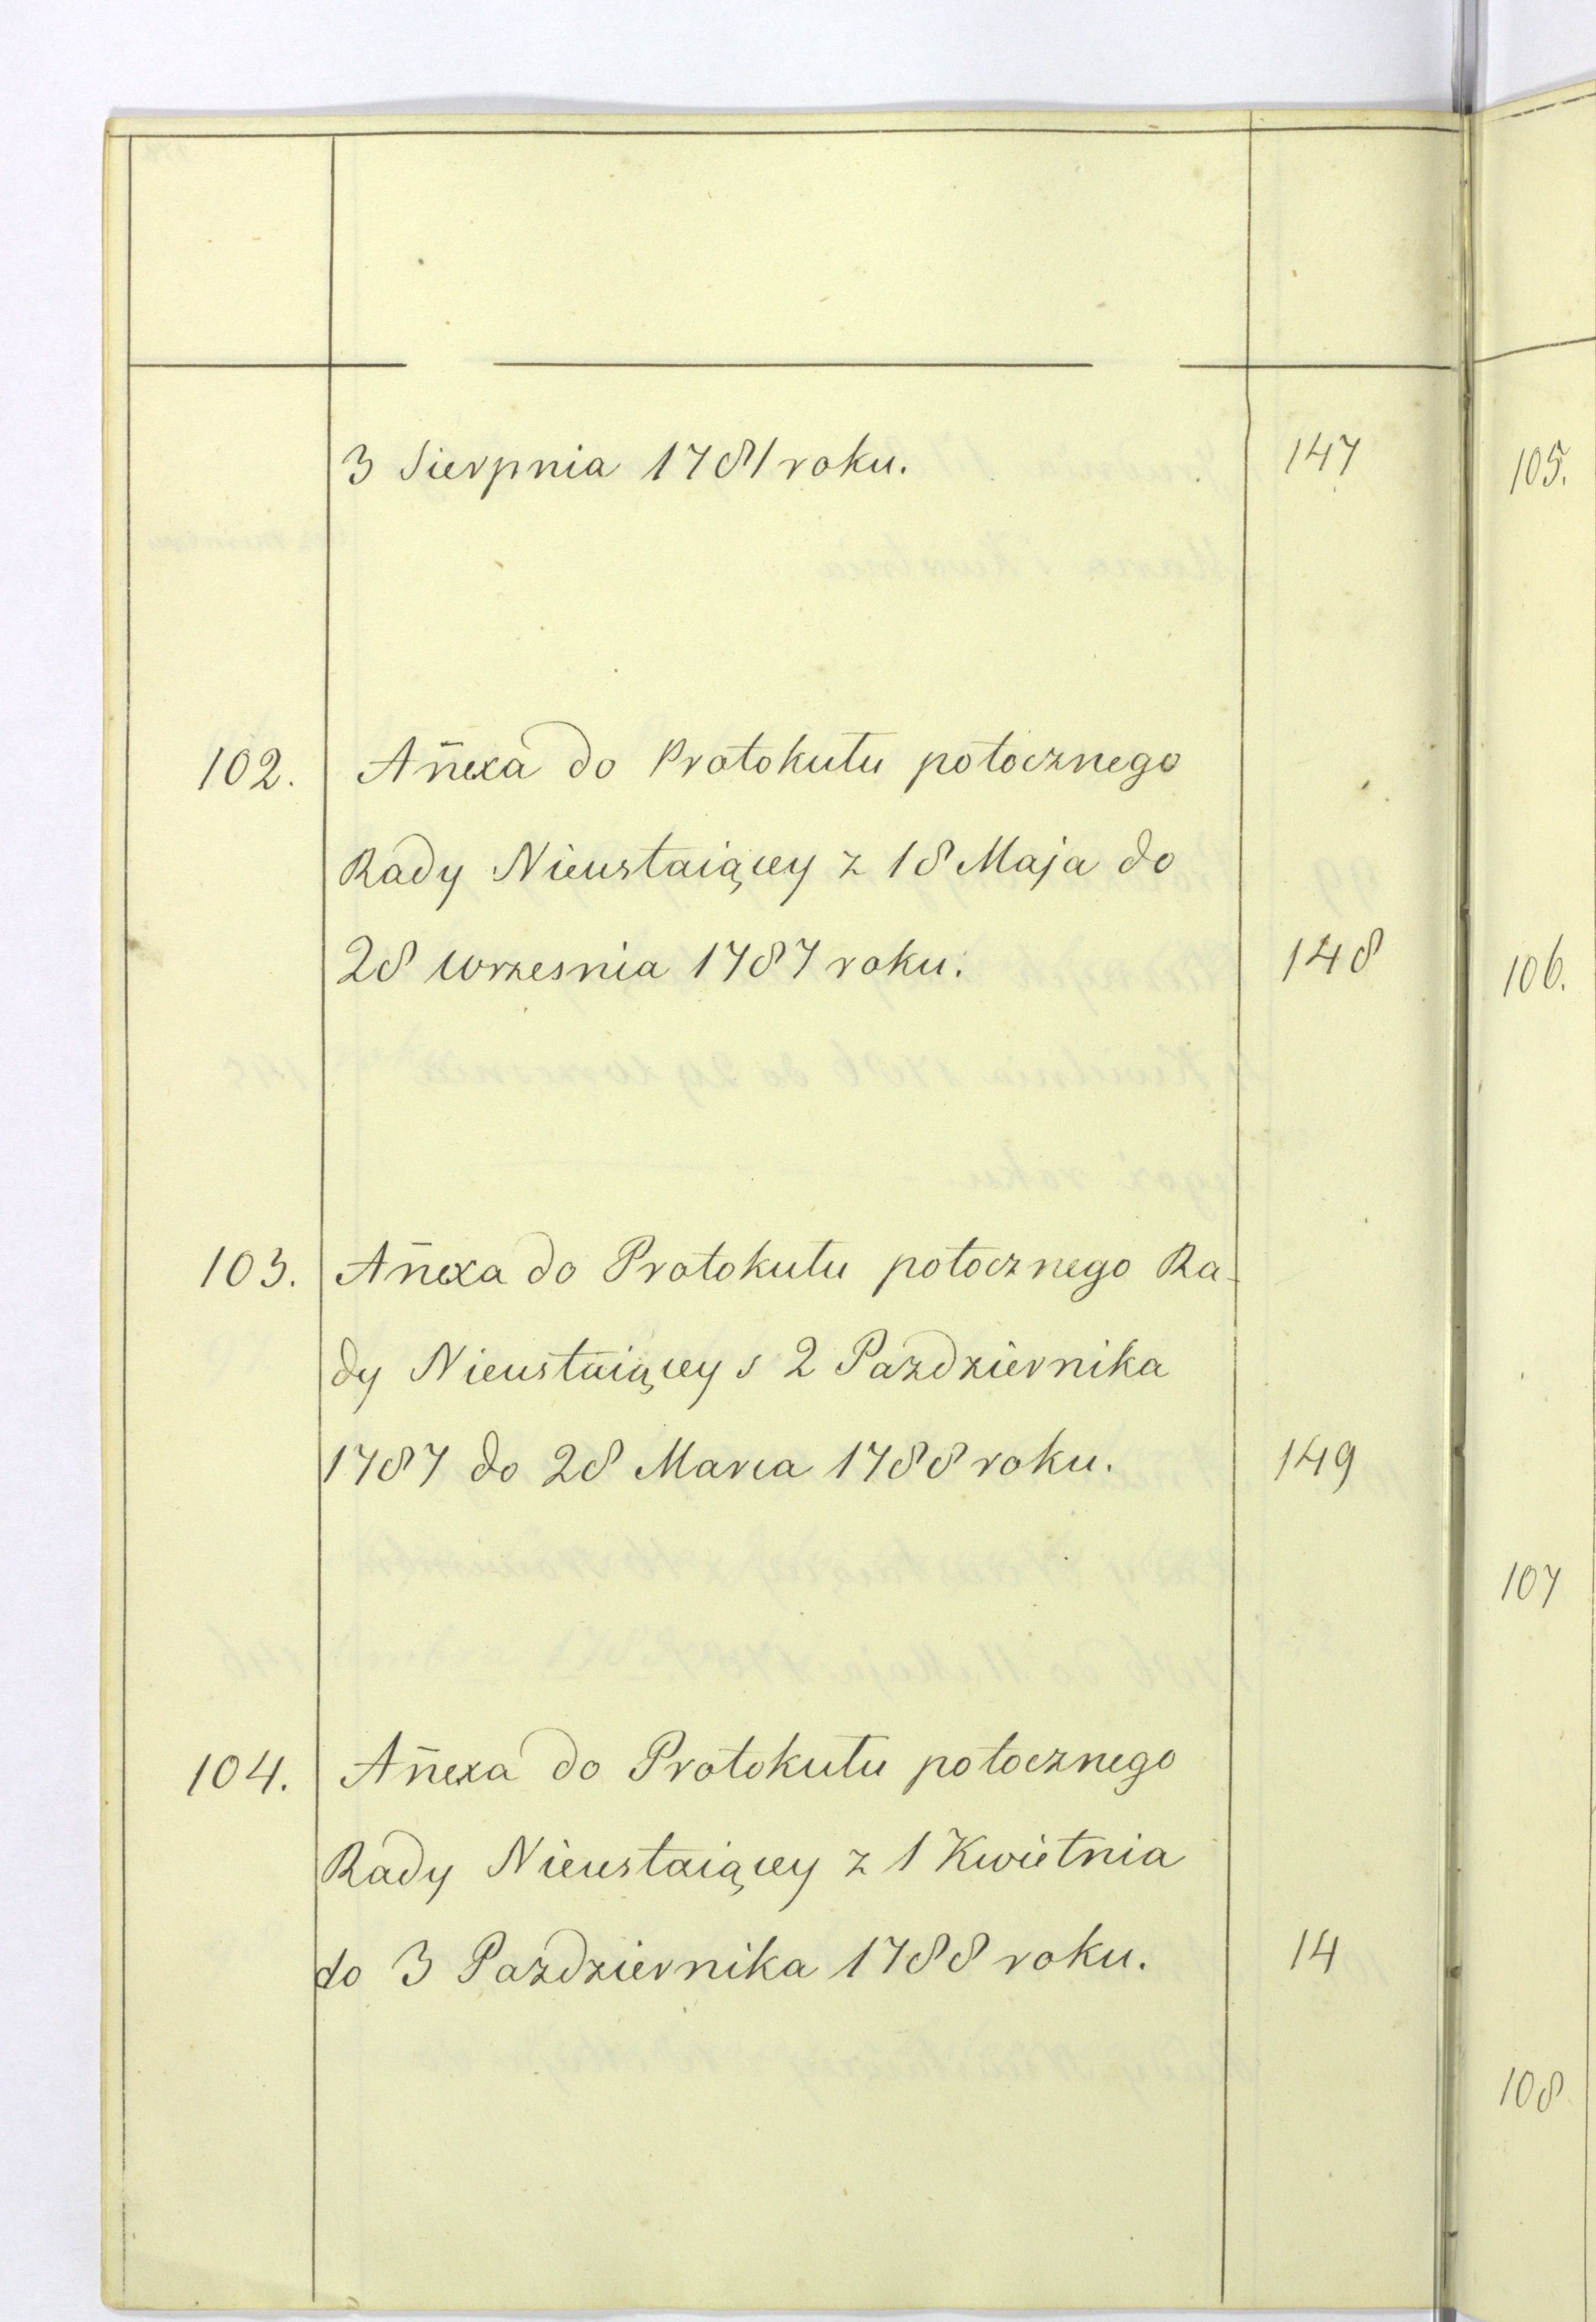 3 Sierpnia 1781 roku. 147
102. Añexa do Protokułu potocznego
Rady Nieustaiącey z 18 Maja do
28 Wrzesnia 1787 roku. 148
103. Añexa do Protokułu potocznego Ra-
dy Nieustaiącey s 2 Pazdziernika
1787 do 28 Marca 1788 roku. 149
104. Añexa do Protokułu potocznego
Rady Nieustaiącey z 1 Kwietnia
do 3 Pazdziernika 1788 roku. 14
105.
106.
107
108